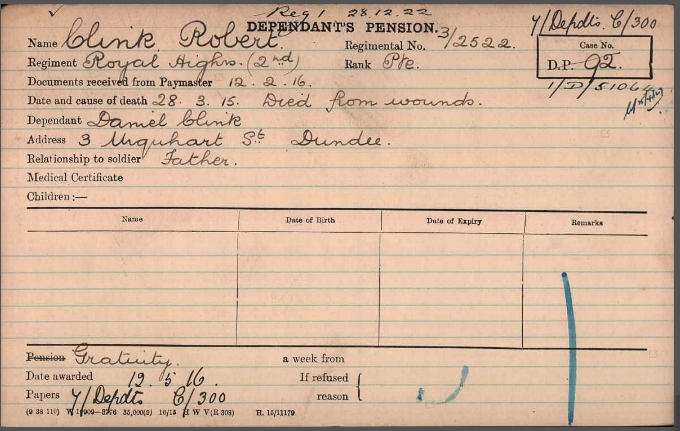 Reg 1 28.12.22
DEPENDANT'S PENSION.
Y/Depdts. C/300
Name Clink Robert
Regimental No. 3/2522.
Case No.
Regiment Royal Highrs. (2nd)
Rank Pte.
D.P. 92.
Documents received from Paymaster 12. 2. 16.
1/D/5106
Date and cause of death 28. 3. 15. Died from wounds.
Dependant Daniel Clink
Address 3 Urquhart St. Dundee.
Relationship to soldier Father.
Medical Certificate
Children:—
Name Date of Birth Date of Expiry Remarks
Pension Gratuity. a week from
Date awarded 19. 5. 16. If refused
reason
Papers Y/Depdts C/300
(9 38 110) W 35,000(3) 10/15 H W V(R 308) H. 15/11179